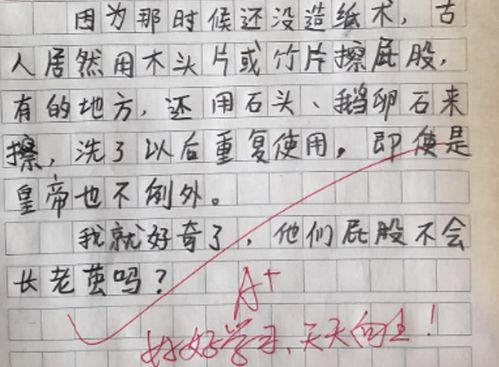 因为那时候还没造纸术，古
人居然用木头片或竹片擦屁股，
有的地方，还用石头、鹅卵石来
擦，洗了以后重复使用。即使是
皇帝也不例外。
我就好奇了，他们屁股不会
长老茧吗？
A+
好好学习、天天向上！